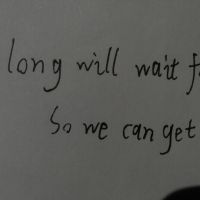 long will wait
So we can get